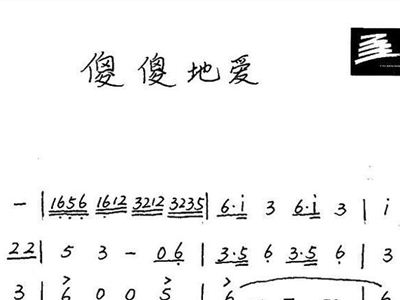 傻傻地爱
- | 1656 1612 3212 3235 | 6·i 3 6·i 3 | i
22 | 5 3 - 06 | 3·5 6 3·5 6 | 3
3 | 6 0 0 5 | 6